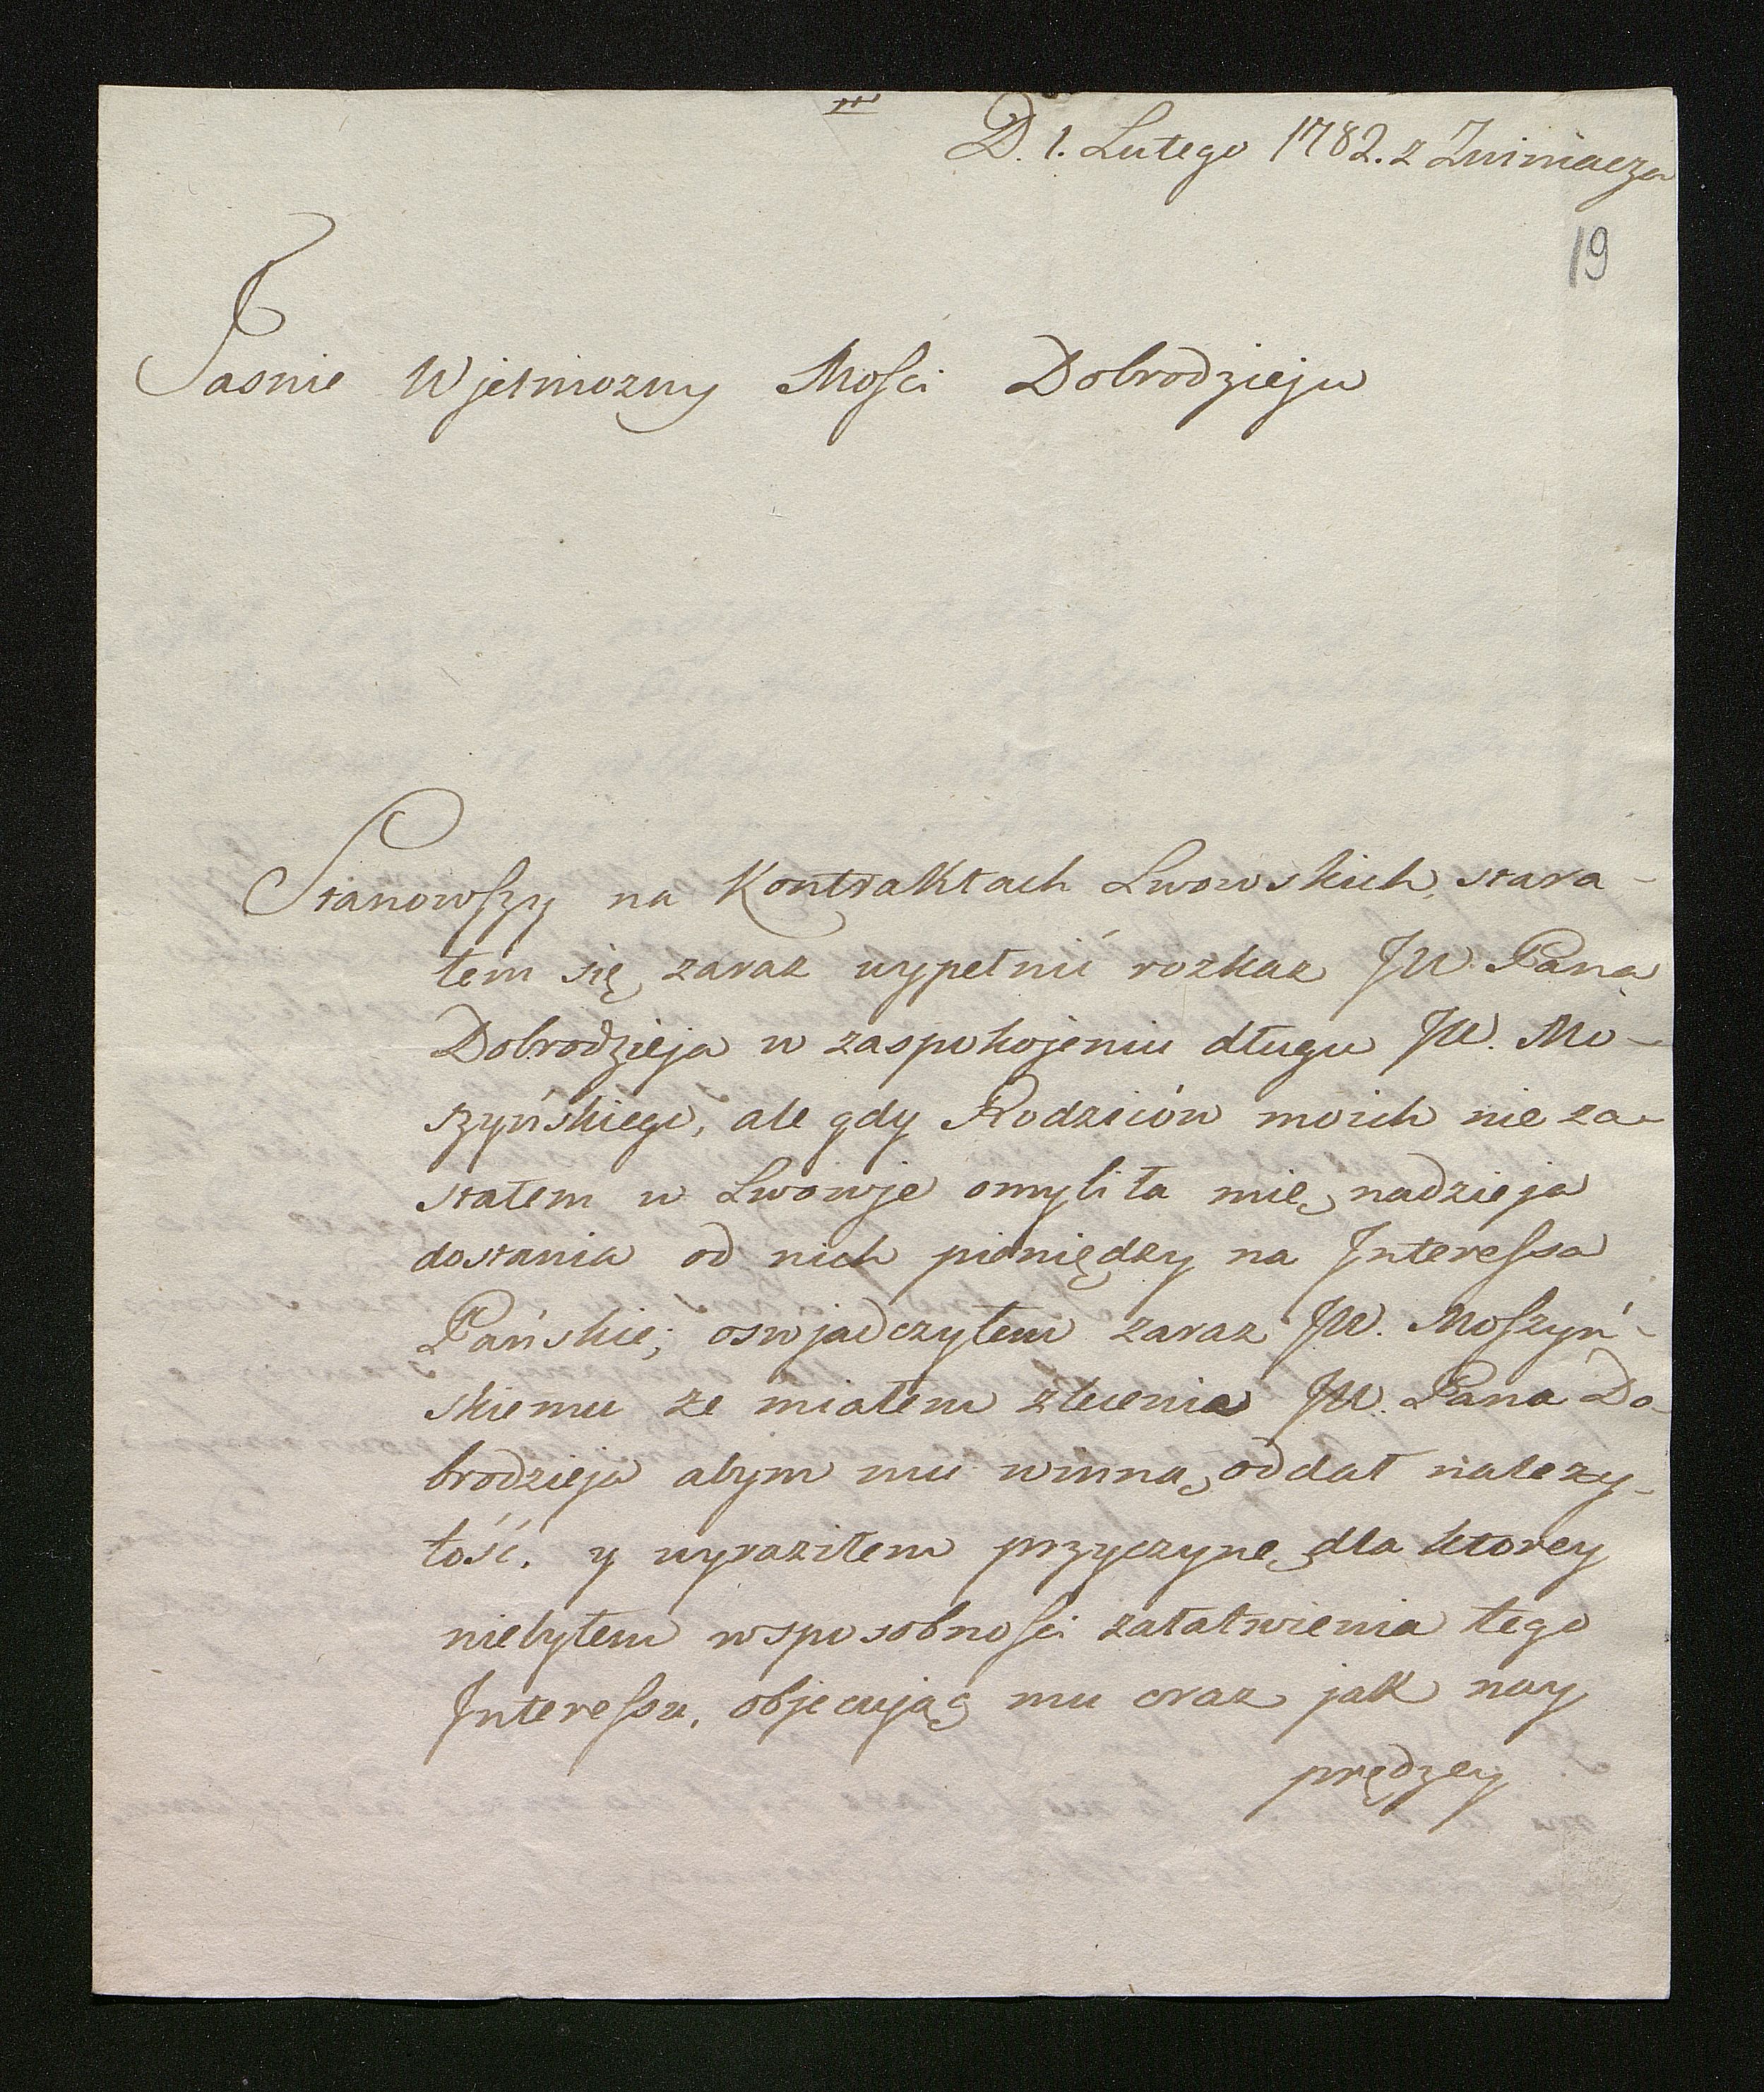 D. 1. Lutego 1782. z Zwiniacza
19
Jasnie Wjelmozny Mości Dobrodzieju
Stanowszy na Kontraktach Lwowskich, stara-
łem się zaraz wypełnić rozkaz JW. Pana
Dobrodzieja w zaspokojeniu długu JW. Mo-
szyńskiego, ale gdy Rodziców moich nie za-
stałem w Lwowje omyliła mię nadzieja
dostania od nich pieniędzy na Interessa
Pańskie; oswjadczyłem zaraz JW. Moszyń-
skiemu ze miałem zlecenia JW. Pana Do-
brodzieja abym mu winną oddał nalezy-
tość. y wyraziłem przyczynę dla ktorey
niebyłem wsposobności załatwienia tego
Interessu, objecując mu oraz jak nay
prędzey